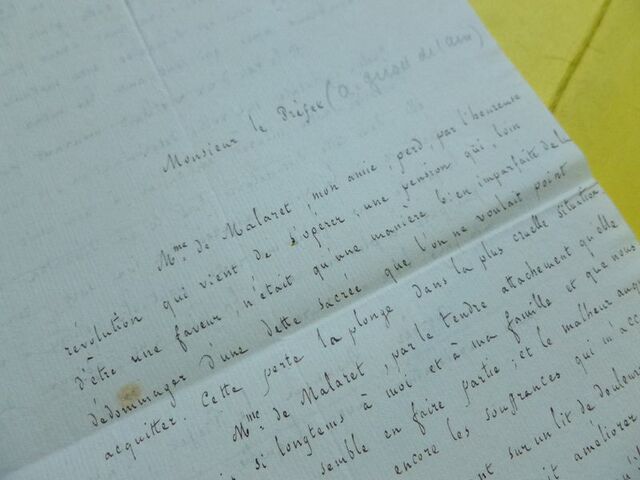 Monsieur le Préfet (a
Mme de Malaret, mon amie, perd, par l'heureuse
révolution qui vient de s'opérer, une pension qui, loin
d'être une faveur, n'était qu'une manière bien imparfaite de la
dédommager d'une dette sacrée que l'on ne voulait point
acquitter. Cette perte la plonge dans la plus cruelle situation
Mme de Malaret, par le tendre attachement qu'elle
si longtems à moi et à ma famille et que nous
semble en faire partie; et le malheur
encore les souffrances qui m'acc
sur un lit de douleur
améliorer